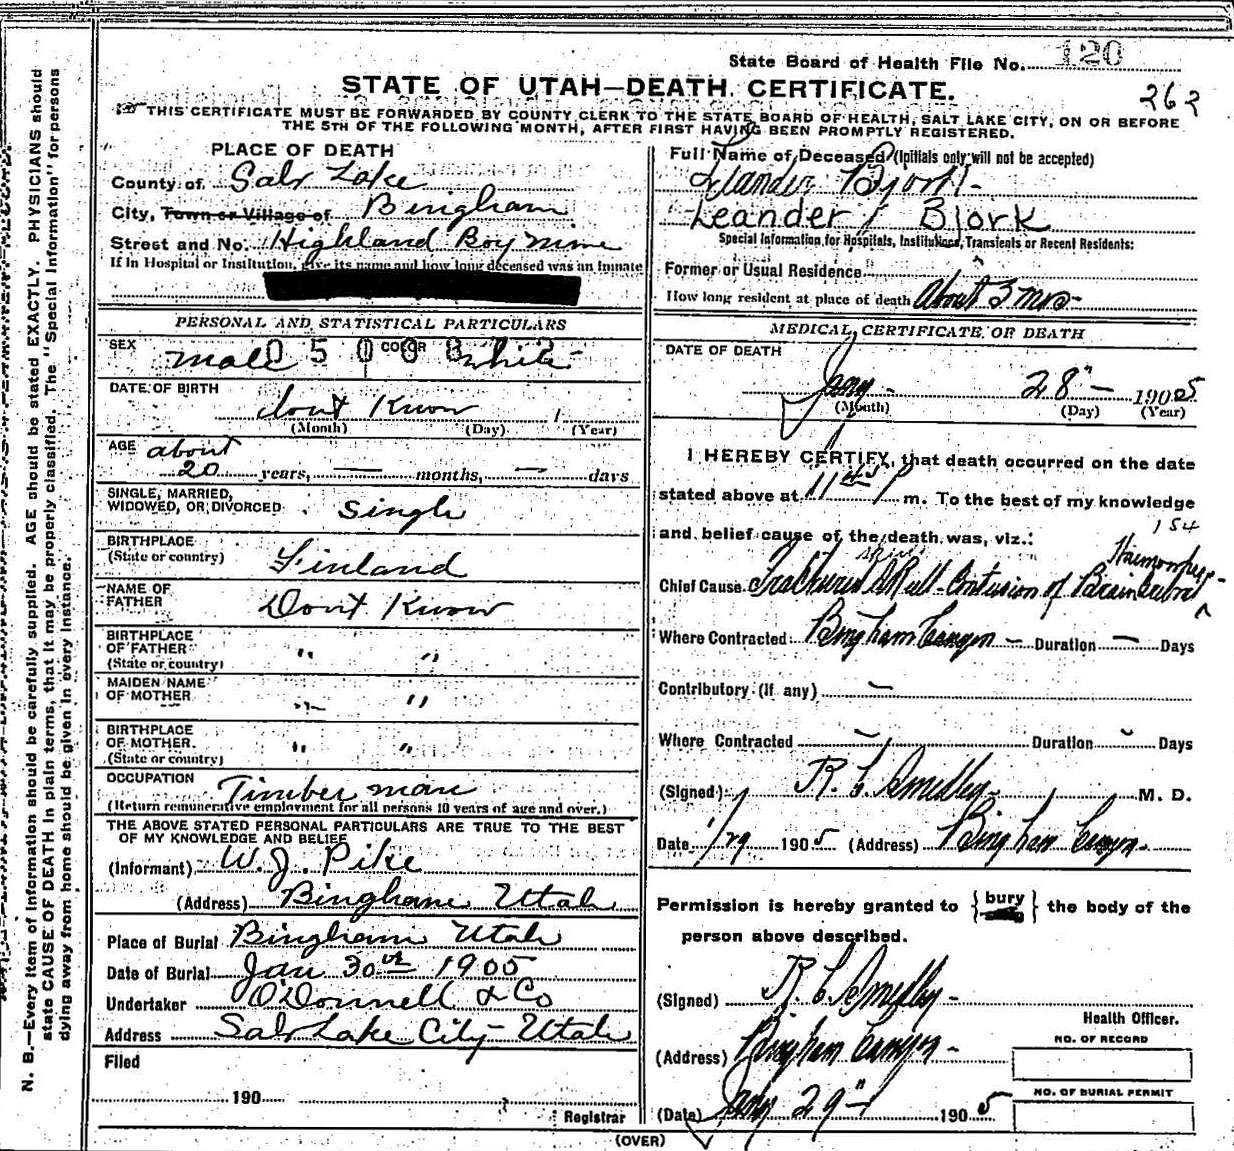 State Board of Health File No. 120
STATE OF UTAH—DEATH CERTIFICATE.
262
THIS CERTIFICATE MUST BE FORWARDED BY COUNTY CLERK TO THE STATE BOARD OF HEALTH, SALT LAKE CITY, ON OR BEFORE
THE 5TH OF THE FOLLOWING MONTH, AFTER FIRST HAVING BEEN PROMPTLY REGISTERED.
PLACE OF DEATH
County of Salt Lake
City, Town or Village of Bingham
Street and No. Highland Boy Mine
If in Hospital or Institution, give its name and how long deceased was an inmate
PERSONAL AND STATISTICAL PARTICULARS
SEX male COLOR white
DATE OF BIRTH
dont Know 1
(Month) (Day) (Year)
AGE about
20 years, — months, — days
SINGLE, MARRIED,
WIDOWED, OR DIVORCED Single
BIRTHPLACE
(State or country) Finland
NAME OF
FATHER Dont Know
BIRTHPLACE
OF FATHER " "
(State or country)
MAIDEN NAME
OF MOTHER " "
BIRTHPLACE
OF MOTHER. " "
(State or country)
OCCUPATION Timber man
(Return remunerative employment for all persons 10 years of age and over.)
THE ABOVE STATED PERSONAL PARTICULARS ARE TRUE TO THE BEST
OF MY KNOWLEDGE AND BELIEF
(Informant) W. J. Pike
(Address) Bingham Utah
Place of Burial Bingham Utah
Date of Burial Jan 30th 1905
Undertaker O'Donnell & Co
Address Salt Lake City Utah
Filed
190
Registrar
Full Name of Deceased (Initials only will not be accepted)
Leander Bjork
Leander Bjork
Special Information for Hospitals, Institutions, Transients or Recent Residents:
Former or Usual Residence
How long resident at place of death About 3 mos
MEDICAL CERTIFICATE OF DEATH
DATE OF DEATH
Jany 28" 1905
(Month) (Day) (Year)
I HEREBY CERTIFY, that death occurred on the date
stated above at 11 45 P m. To the best of my knowledge
154
and belief cause of the death was, viz.:
Haemorrhage
Chief Cause Fractured Skull - Contusion of Brain
Where Contracted Bingham Canyon — Duration — Days
Contributory (if any) —
Where Contracted — Duration Days
(Signed) R. C. Smedley M. D.
Date 1/29 1905 (Address) Bingham Canyon
Permission is hereby granted to { bury } the body of the
person above described.
(Signed) R. C. Smedley
Health Officer.
(Address) Bingham Canyon
NO. OF RECORD
NO. OF BURIAL PERMIT
(Date) Jany 29" 1905
(OVER)
N. B.—Every item of information should be carefully supplied. AGE should be stated EXACTLY. PHYSICIANS should
state CAUSE OF DEATH in plain terms, that it may be properly classified. The "Special Information" for persons
dying away from home should be given in every instance.